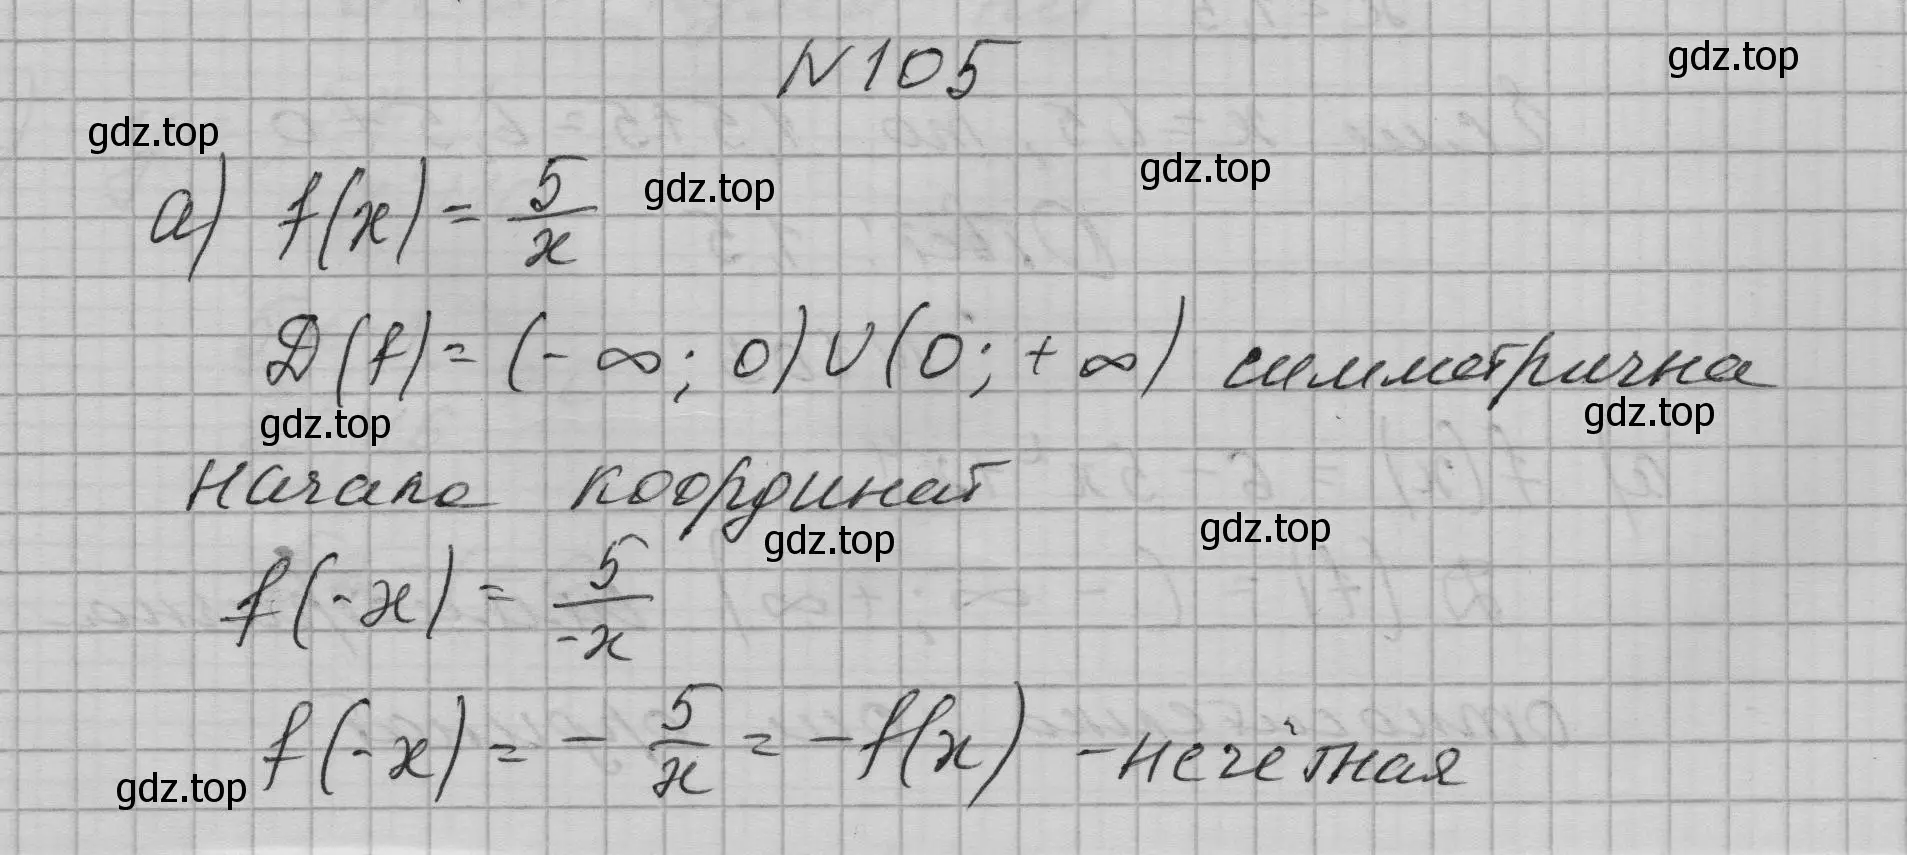 N 105
gdz.top
gdz.top
а) f(x) = 5/x
gdz.top
gdz.top
D(f) = (-∞; 0) ∪ (0; +∞) симметрична
gdz.top
gdz.top
начала координат
gdz.top
gdz.top
f(-x) = 5/-x
f(-x) = - 5/x = -f(x) - нечётная
gdz.top